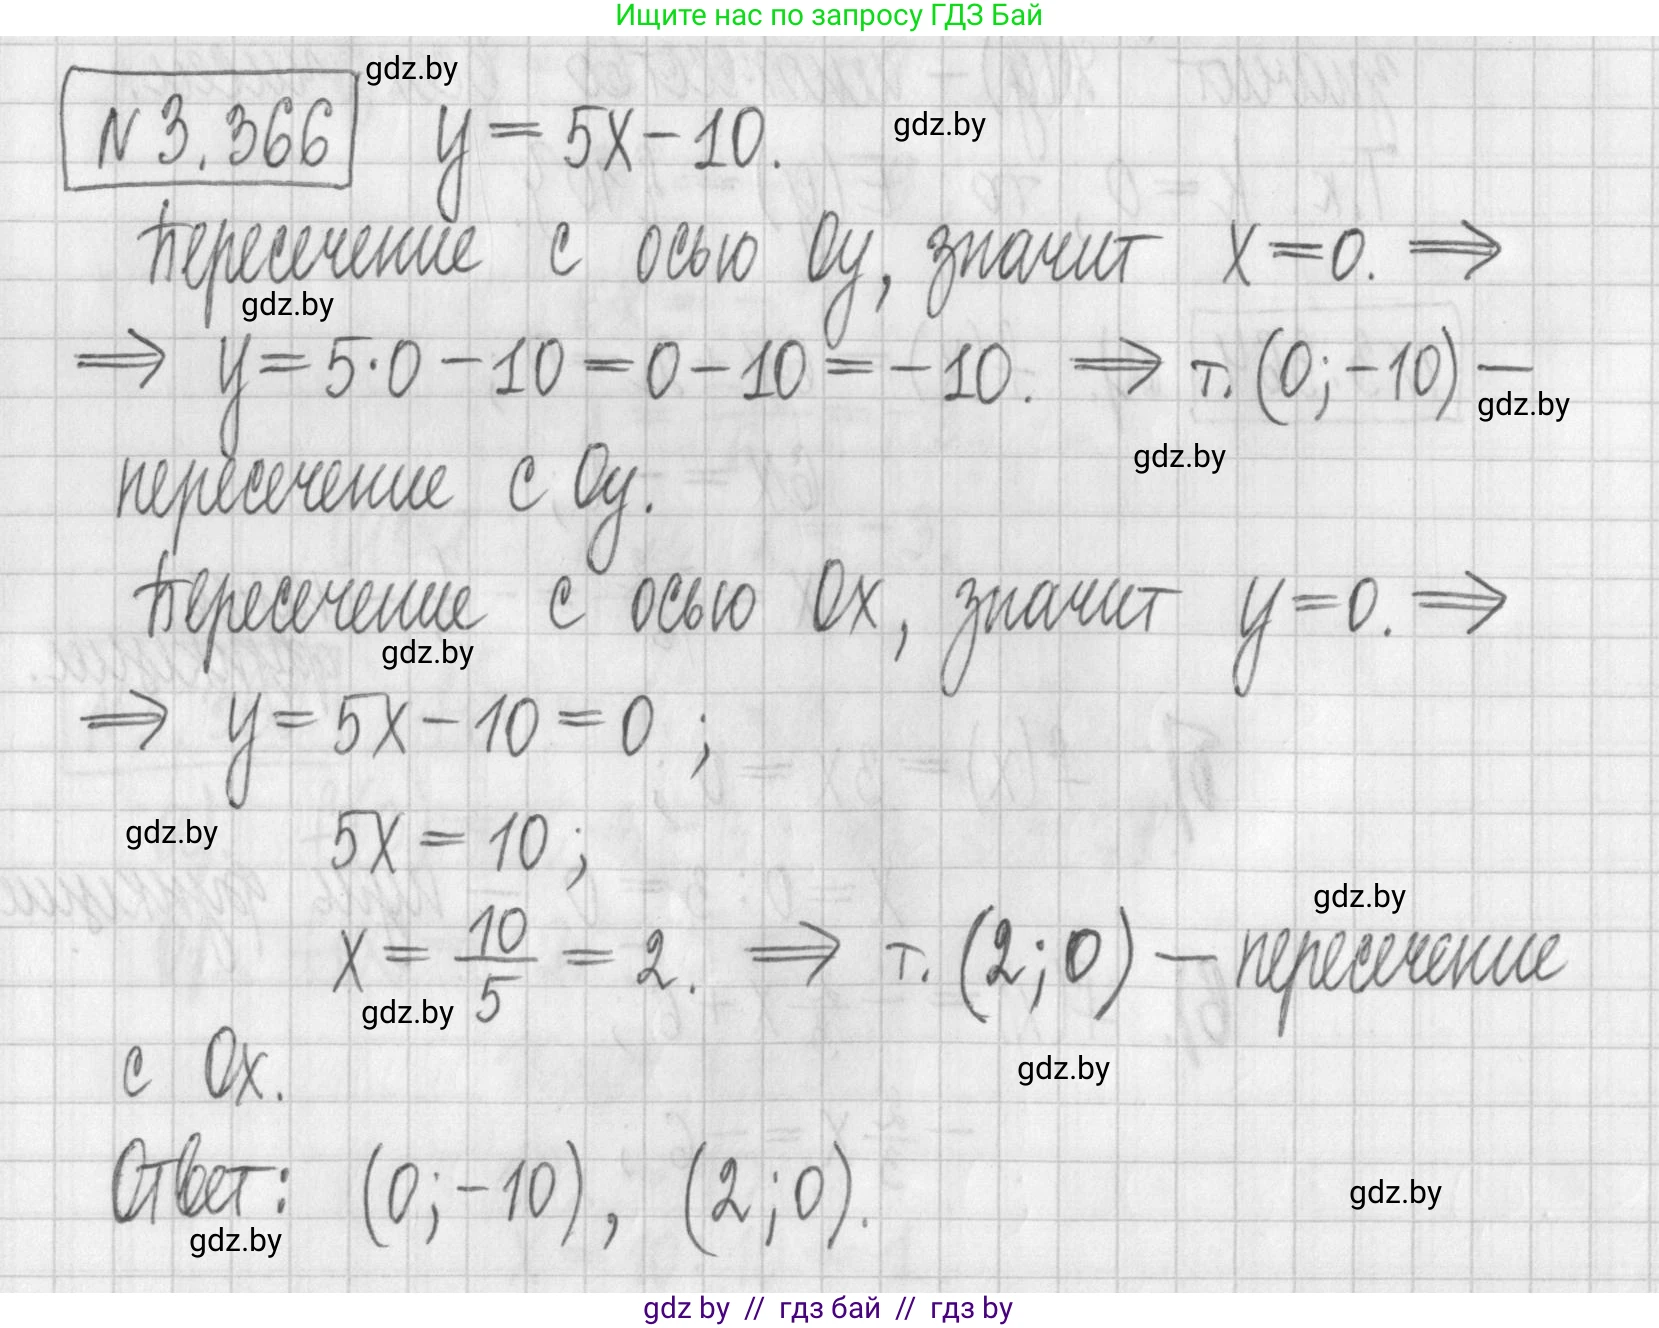 Ищите нас по запросу ГДЗ Бай
gdz.by
N 3.366 y = 5x - 10.
gdz.by
Пересечение с осью Oy, значит x = 0. ⟹
gdz.by
⟹ y = 5·0 - 10 = 0 - 10 = -10. ⟹ т. (0; -10) —
gdz.by
gdz.by
пересечение с Oy.
Пересечение с осью Ox, значит y = 0. ⟹
gdz.by
⟹ y = 5x - 10 = 0 ;
gdz.by
5x = 10 ;
gdz.by
x = 10/5 = 2. ⟹ т. (2; 0) — пересечение
gdz.by
с Ox.
gdz.by
Ответ: (0; -10), (2; 0).
gdz.by
gdz.by
gdz by // гдз бай // гдз by